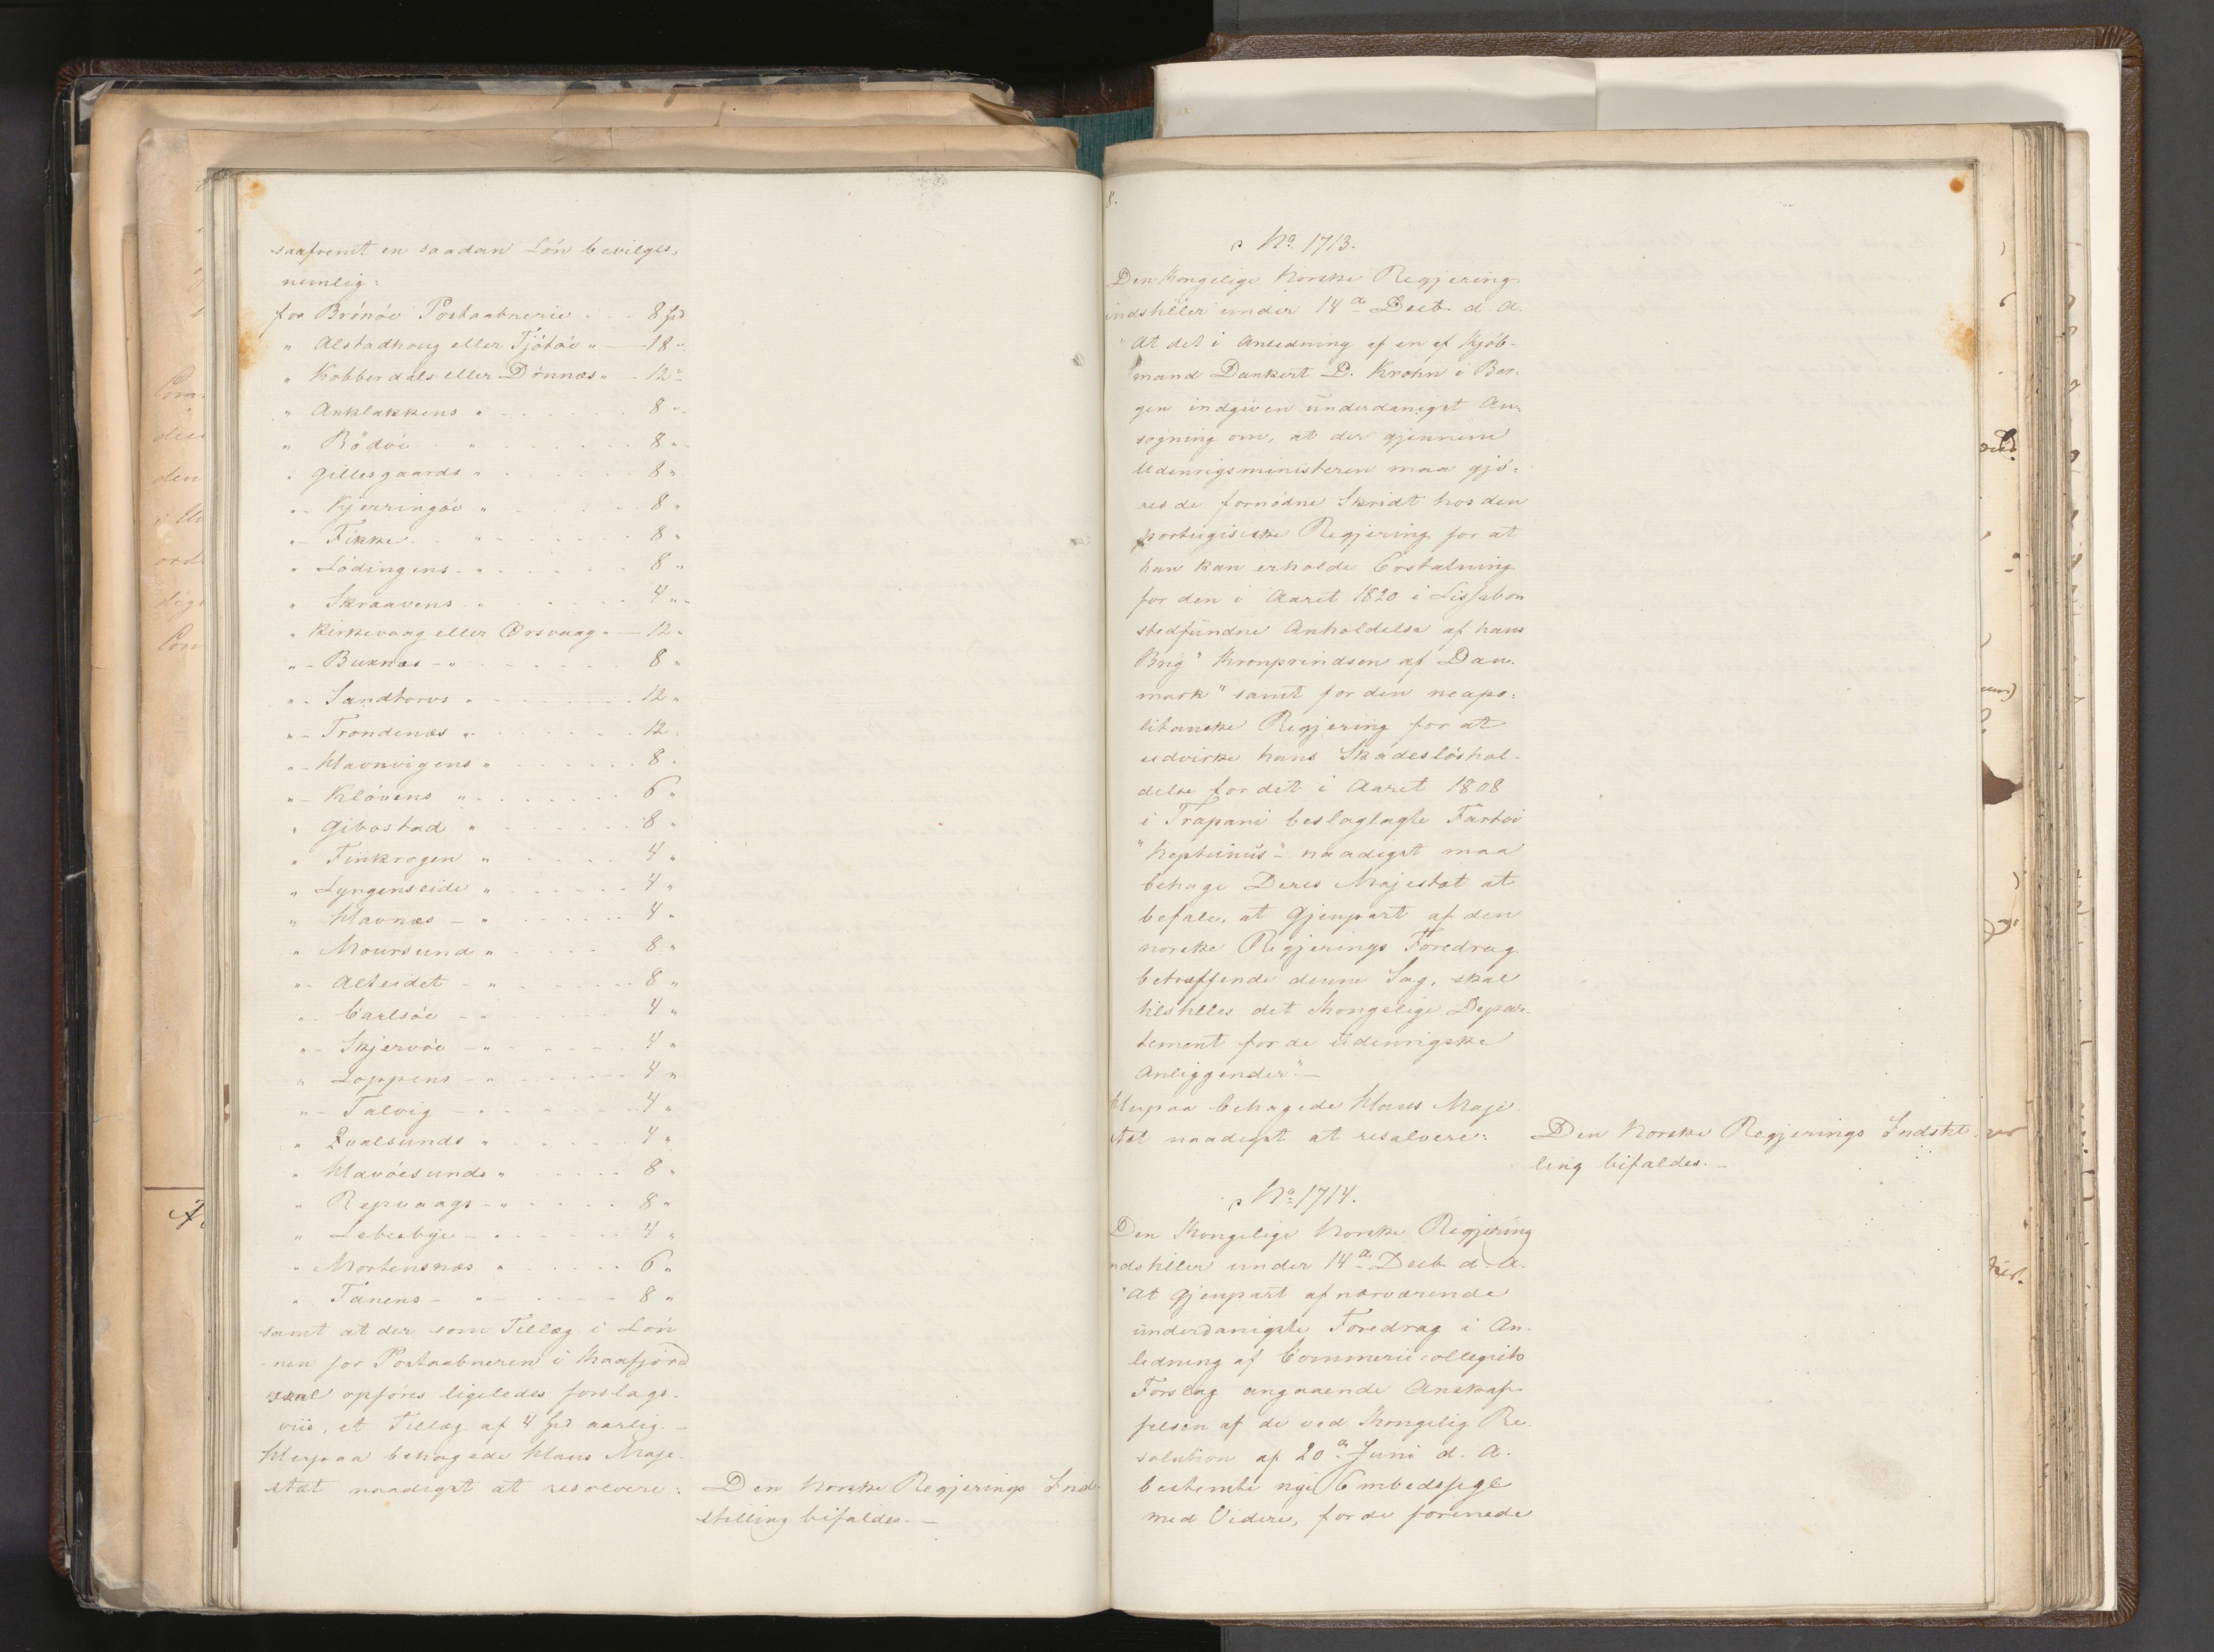 saafremt en saadan Lön bevilges,
nemlig:
for Brönöe Postaabnerie . . . 8 Spd
" Alstadhoug eller Tjötöe " — 18 "
" Kobberdals eller Dönnæs " - 12 "
" Anklakkens " . . . . . . 8 "
" Bödöe . . " . . . . . . 8 "
" Gillesgaards " . . . . . . 8 "
" Kjerringöe " . . . . . . 8 "
" Fikke . . " . . . . . . 8 "
" Lödingens - " . . . . . . 8 "
" Skraavens " . . . . . . 4 "
" Kirkevaag eller Örsvaag " — 12 "
" Buxnæs - " . . . . . . 8 "
" Sandtorvs " . . . . . . 12 "
" Trondenæs " . . . . . . 12 "
" Havnvigens " . . . . . . 8 "
" Klövens " . . . . . . 6 "
" Gibostad " . . . . . . 8 "
" Finkrogen " . . . . . 4 "
" Lyngenseide " . . . . . . 4 "
" Havnæs - " . . . . . . 4 "
" Moursund " . . . . . 8 "
" Alteidet - " . . . . . . 8 "
" Carlsöe - " . . . . . 4 "
" Skjervöe - " . . . . . . 4 "
" Loppens - " . . . . . . 4 "
" Talvig - " . . . . . . 4 "
" Qvalsunds " . . . . . . 4 "
" Havöesunds " . . . . . 8 "
" Repvaags - " . . . . . 8 "
" Lebesbye - " . . . . . 4 "
" Mortensnæs " . . . . . . 6 "
" Tanens - " . . . . . 8 "
samt at der som Tillæg i Lön
-nen for Postaabneren i Kaafjord
skal opföres ligeledes forslags-
viis, et Tillæg af 4 Spd aarlig. —
Herpaa behagede Hans Maje-
stæt naadigst at resolvere:
Den Norske Regjerings Ind-
stilling bifaldes. —
8.
No 1713.
Den Kongelige Norske Regjering
indstiller under 14de Decb. d. A.
"At det i Anledning af en af Kjöb-
mand Dankert D. Krohn i Ber-
gen indgiven underdanigst An-
sögning om, at der gjennem
Udenrigsministeren maa gjö-
res de fornödne Skridt hos den
portugisiske Regjering for at
han kan erholde Erstatning
for den i Aaret 1820 i Lissabon
stedfundne Anholdelse af hans
Brig "Kronprindsen af Dan-
mark" samt for den neapo-
litanske Regjering for at
udvirke hans Skadeslöshol-
delse for det i Aaret 1808
i Trapani beslaglagte Fartöi
"Neptunus" - naadigst maa
behage Deres Majestæt at
befale, at Gjenpart af den
norske Regjerings Foredrag
betræffende denne Sag, skal
tilstilles det Kongelige Depar-
tement for de udenrigske
Anliggender". —
Herpaa behagede Hans Maje-
stæt naadigst at resolvere:
Den Norske Regjerings Indstil-
ling bifaldes. —
No 1714.
Den Kongelige Norske Regjering
indstiller under 14de Decb. d. A.
"At Gjenpart af nærværende
underdanigste Foredrag i An-
ledning af Commercecollegiets
Forslag angaaende Anskaf-
felsen af de ved Kongelig Re-
solution af 20de Juni d. A.
bestemte nye Embedssegl
med Videre, for de forenede